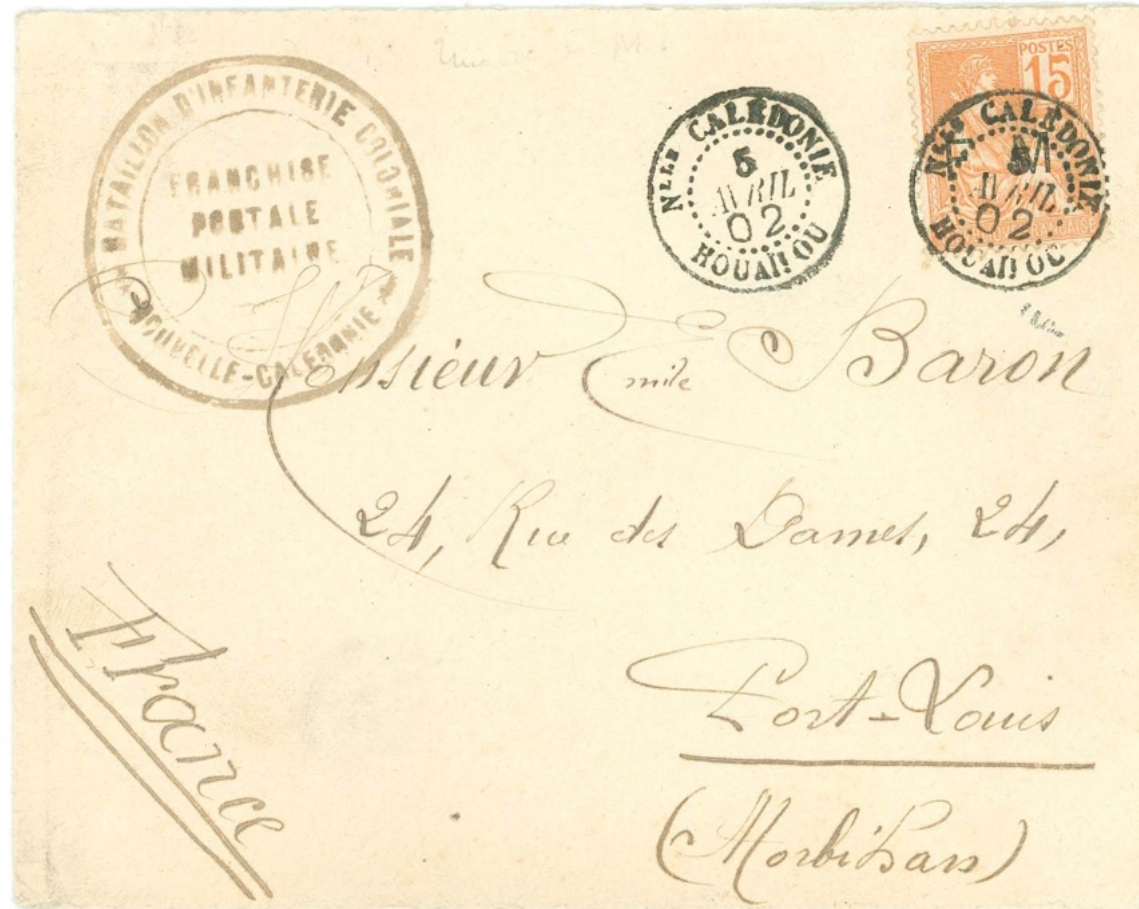 BATAILLON D'INFANTERIE COLONIALE
FRANCHISE
POSTALE
MILITAIRE
NOUVELLE-CALEDONIE
Nlle CALÉDONIE
5
AVRIL
02
HOUAÏLOU
POSTES
15
Nlle CALÉDONIE
5
AVRIL
02
HOUAÏLOU
Monsieur Emile Baron
24, Rue des Dames, 24,
Port-Louis
(Morbihan)
France